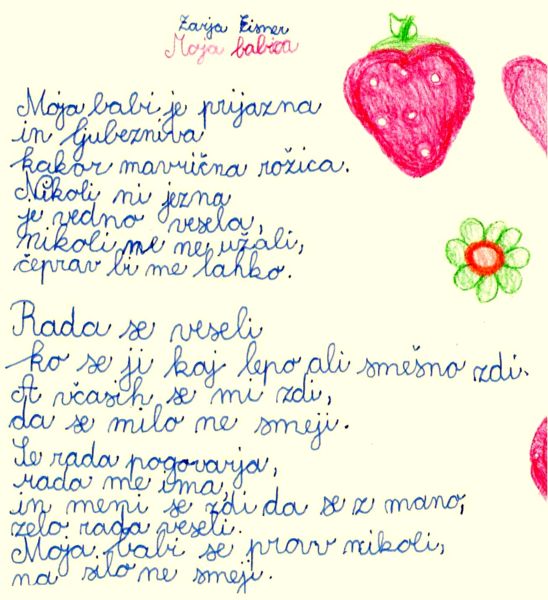 Zarja Eisner
Moja babica
Moja babi je prijazna
in ljubezniva
kakor mavrična rožica.
Nikoli ni jezna
je vedno vesela,
nikoli me ne užali,
čeprav bi me lahko.
Rada se veseli
ko se ji kaj lepo ali smešno zdi.
A včasih se mi zdi,
da se milo ne smeji.
Se rada pogovarja,
rada me ima,
in meni se zdi da se z mano,
zelo rada veseli.
Moja babi se prav nikoli,
na silo ne smeji.